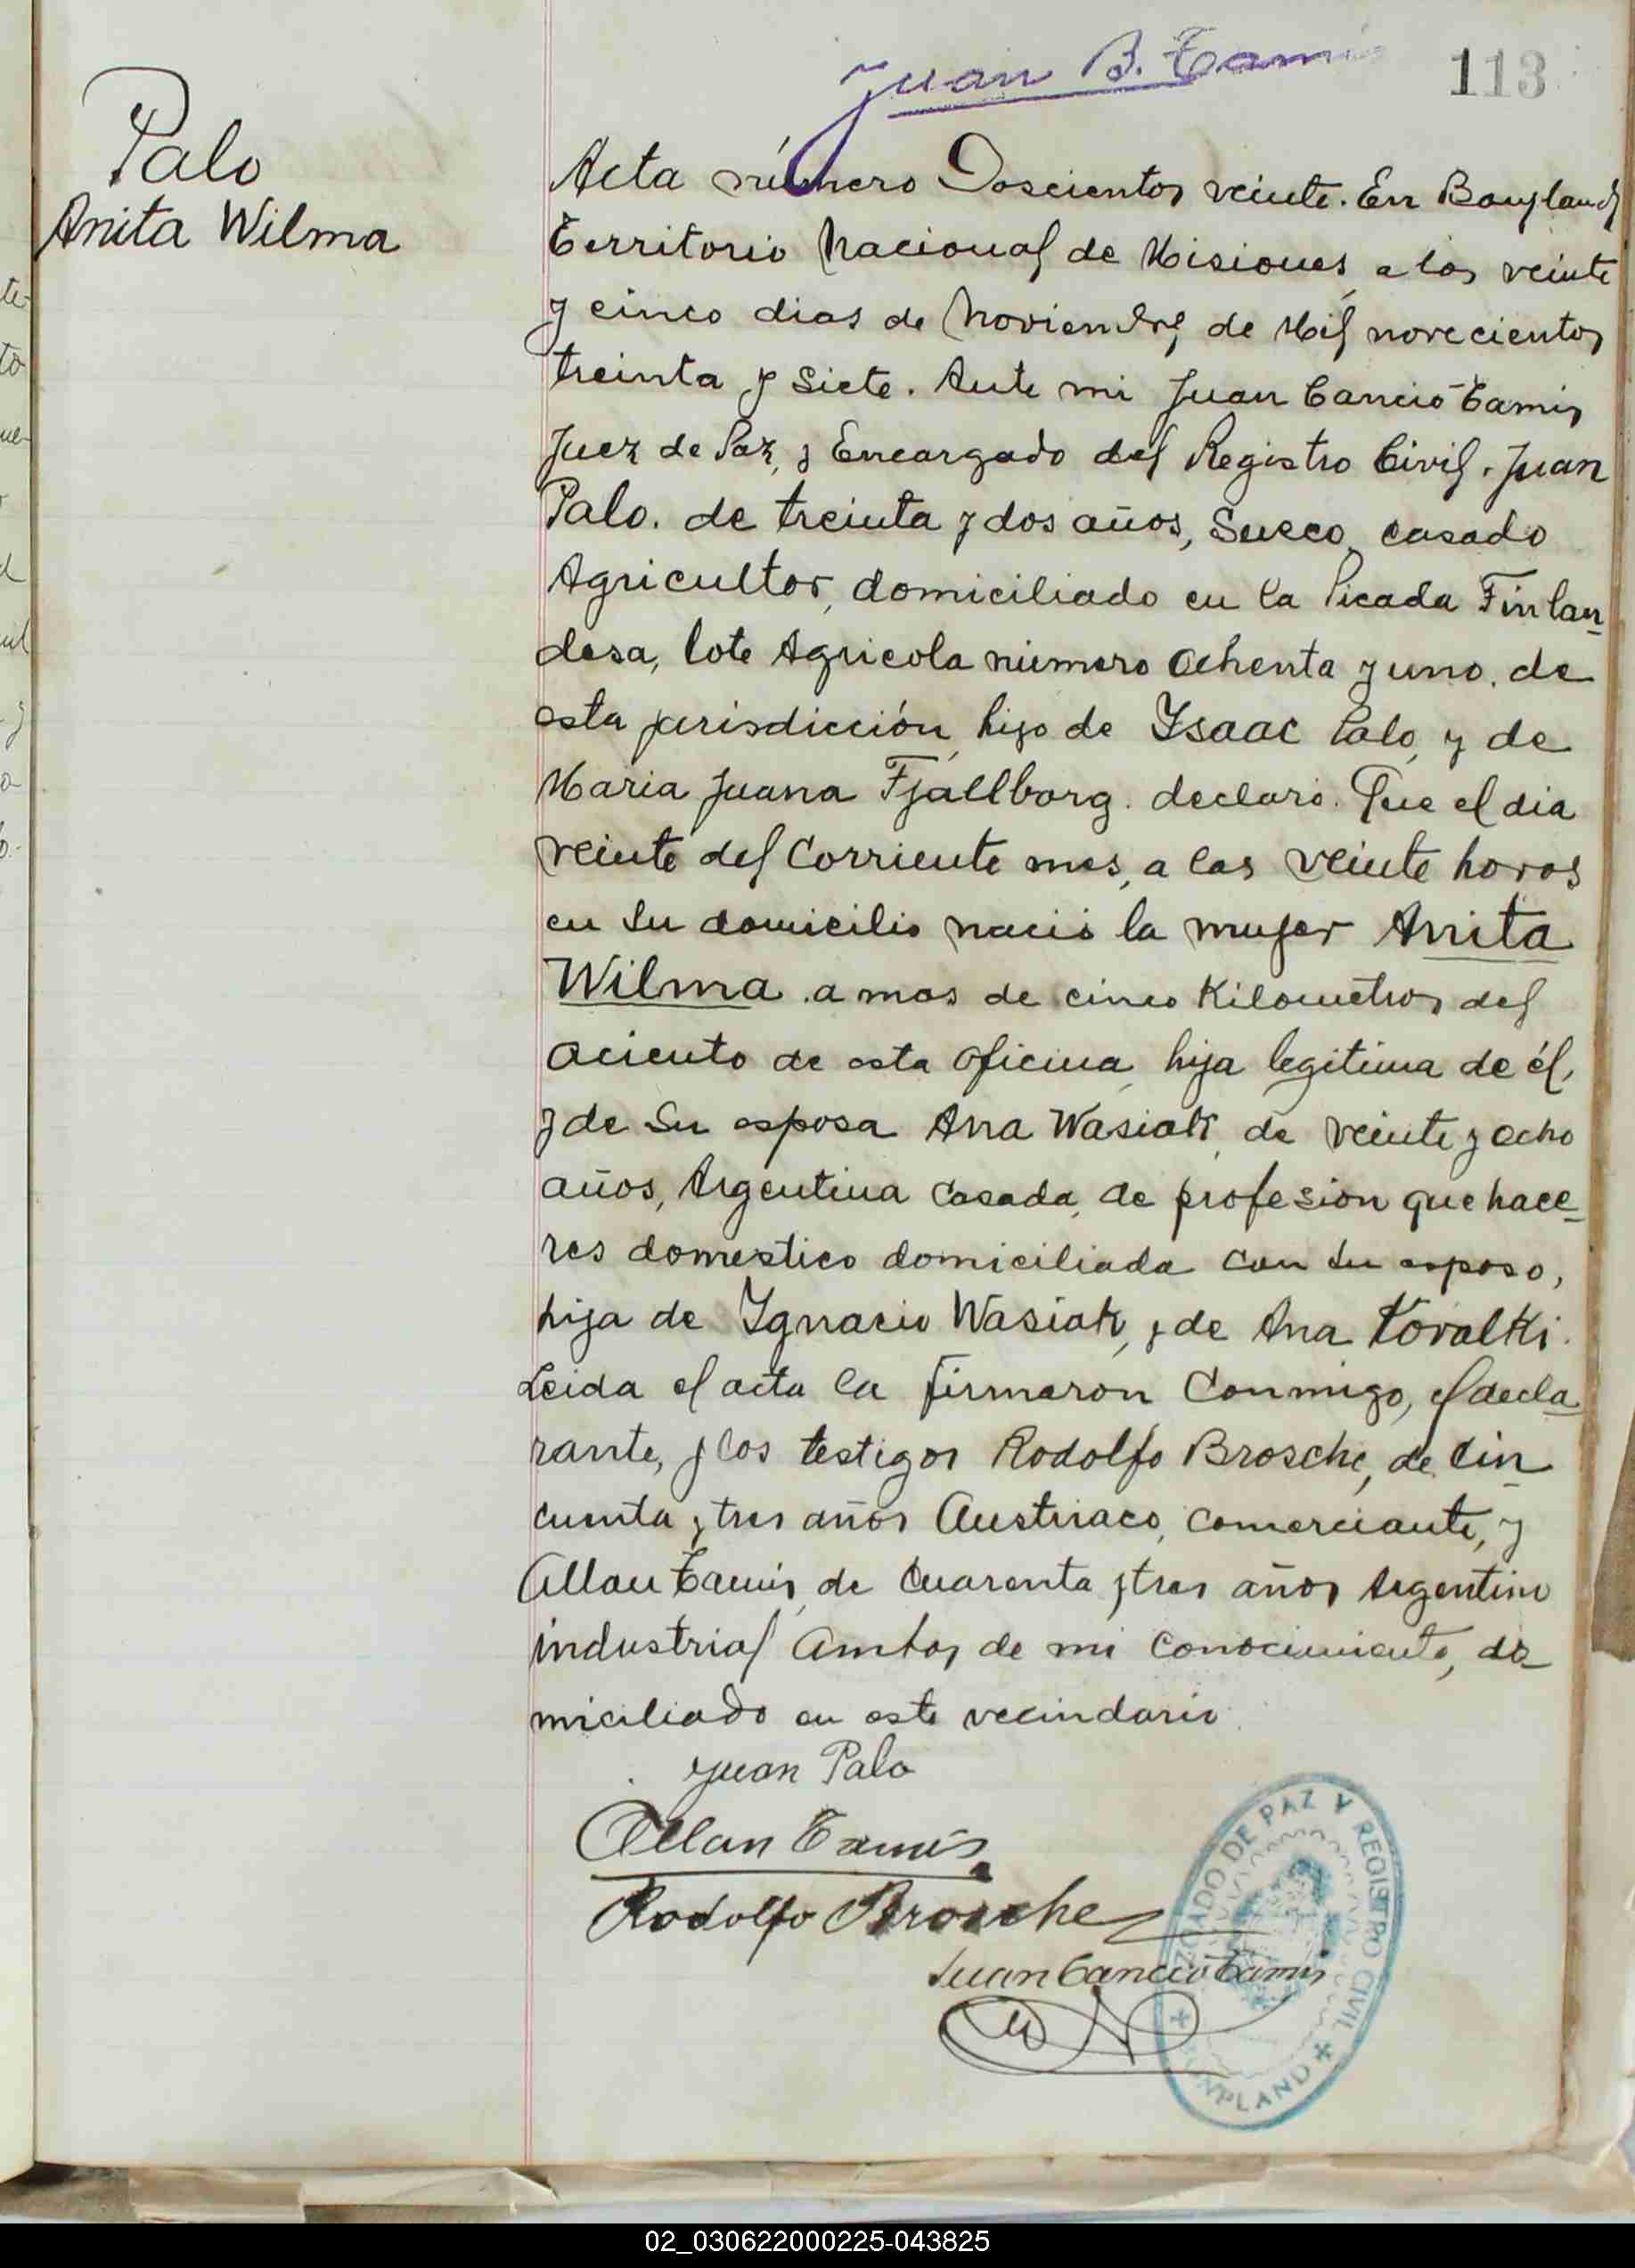 Juan B. Tamis
113
Palo
Anita Wilma
Acta número Doscientos veinte. En Bonpland
Territorio Nacional de Misiones, a los veinte
y cinco dias de Noviembre de Mil novecientos
treinta y siete. Ante mi Juan Cancio Tamis
Juez de Paz, y Encargado del Registro Civil. Juan
Palo. de treinta y dos años, Sueco, casado
Agricultor, domiciliado en la Picada Finlan-
desa, lote Agricola número Ochenta y uno. de
esta jurisdicción, hijo de Ysaac Palo, y de
Maria Juana Fjallborg. declaró. Que el dia
veinte del Corriente mes, a las veinte horas
en su domicilio nació la mujer Anita
Wilma. a mas de cinco Kilometros del
aciento de esta oficina, hija legitima de él,
y de su esposa Ana Wasiak, de veinte y ocho
años, Argentina Casada, de profesion quehace-
res domestico domiciliada con su esposo,
hija de Ygnacio Wasiak, y de Ana Kovalki.
Leida el acta la firmaron Conmigo, el decla-
rante, y los testigos Rodolfo Brosche, de Cin-
cuenta y tres años Austriaco, comerciante, y
Allan Tamis, de Cuarenta y tres años Argentino
industrial Ambos de mi Conocimiento, do-
miciliado en este vecindario.
Juan Palo
Allan Tamis
Rodolfo Brosche
Juan Cancio Tamis
JUZGADO DE PAZ Y REGISTRO CIVIL
BONPLAND
02_030622000225-043825